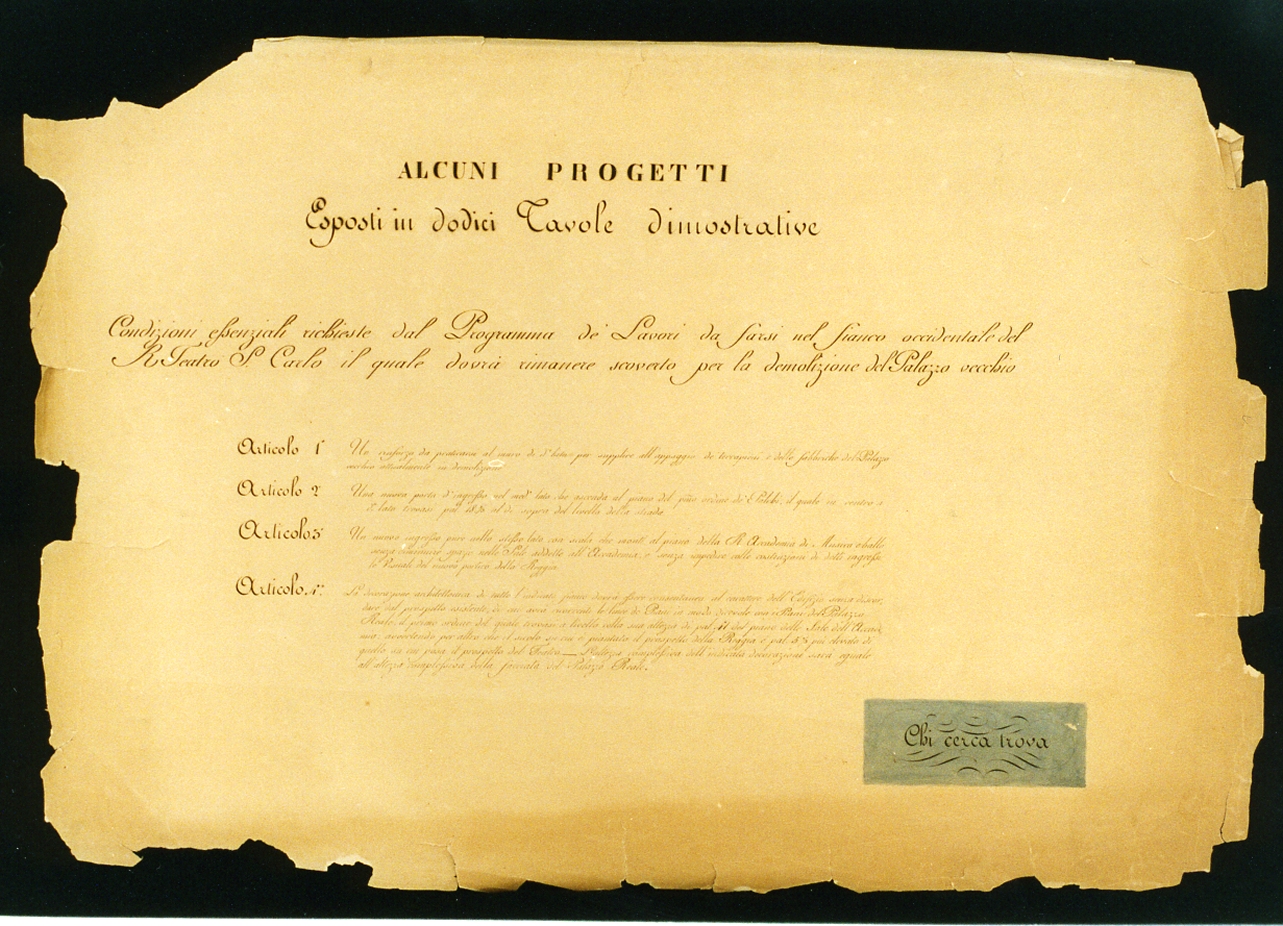 ALCUNI PROGETTI
Esposti in dodici Tavole dimostrative
Condizioni essenziali richieste dal Programma de' Lavori da farsi nel fianco occidentale del
R. Teatro S. Carlo il quale dovrà rimanere scoverto per la demolizione del Palazzo vecchio
Articolo 1° Un rinforzo da praticarsi al muro di do lato per supplire all'appoggio de' terrapieni e delle fabbriche del Palazzo
vecchio attualmente in demolizione
Articolo 2° Una nuova porta d'ingresso nel med° lato che ascenda al piano del primo ordine de' Palchi, il quale in centro a
do lato trovasi pal. al di sopra del livello della strada
Articolo 3° Un nuovo ingresso pure nello stesso lato con scala che monti al piano della R. Accademia di Musica e ballo
senza spazio nelle Sale addette all'Accademia, e senza impedire colle costruzioni di detto ingresso
le Visuali del nuovo portico della Reggia
Articolo 4° La decorazione architettonica di tutto l'indicato fianco dovrà essere consentanea al carattere dell'Edifizio senza discor
dare dal prospetto esistente, di cui avrà le linee di Piani in modo da con i Piani del Palazzo
Reale, il primo ordine del quale trovasi a livello colla sua altezza di pal. 41 del piano delle Sale dell'Accade
mia; avvertendo per altro che il suolo su cui è piantato il prospetto della Reggia è pal. 5½ più elevato di
quello su cui posa il prospetto del Teatro — L'altezza complessiva dell'indicata decorazione sarà eguale
all'altezza complessiva della facciata del Palazzo Reale.
Chi cerca trova